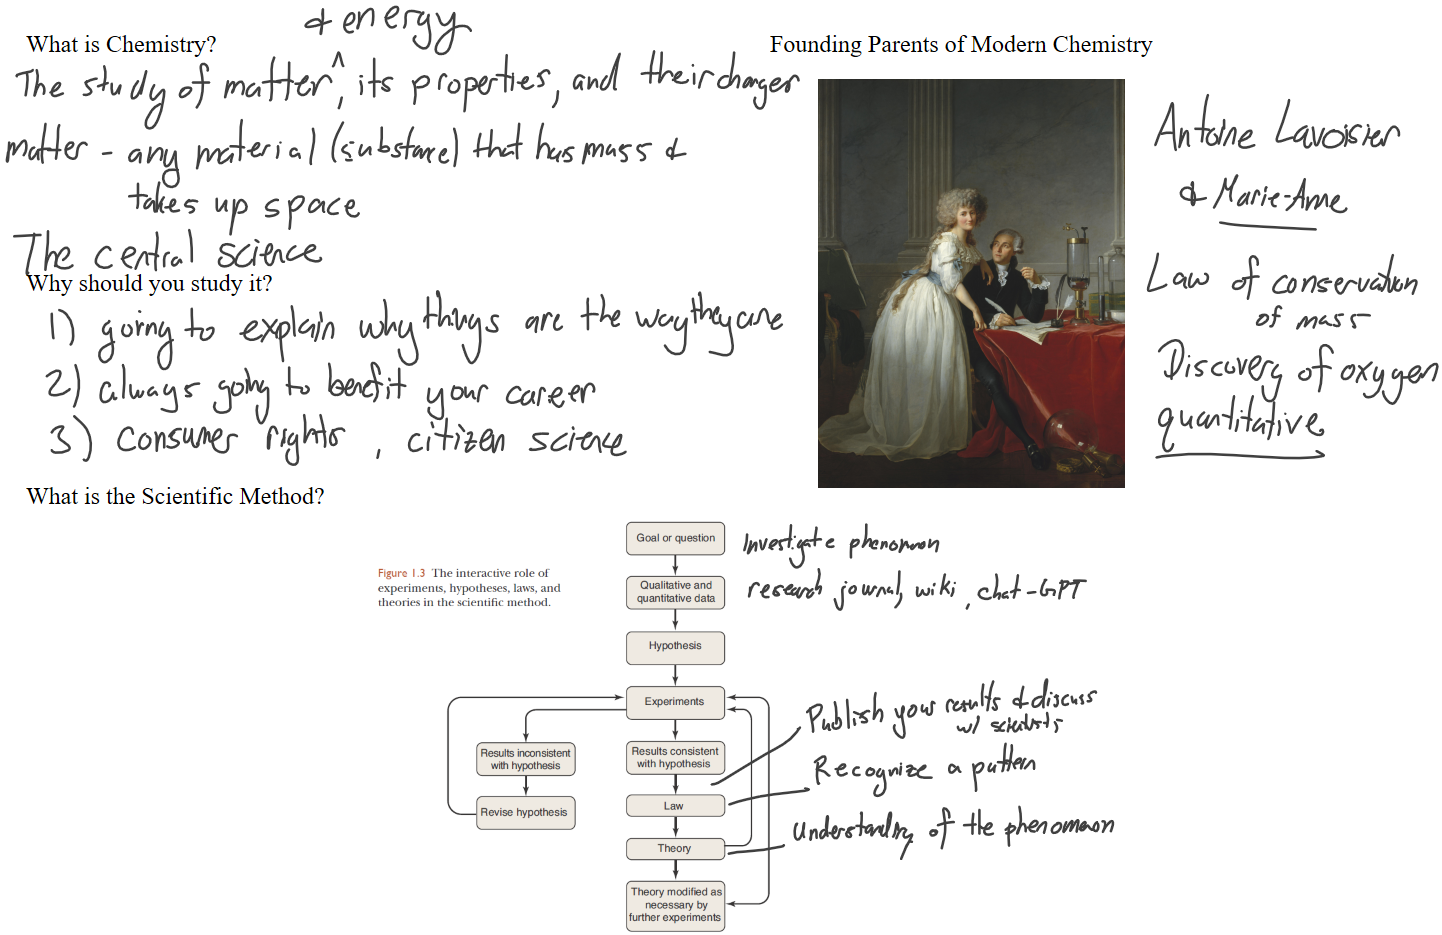 What is Chemistry?
& energy
The study of matter^, its properties, and their changes
matter - any material (substance) that has mass &
takes up space
The central science
Why should you study it?
1) going to explain why things are the way they are
2) always going to benefit your career
3) Consumer rights, citizen science
Founding Parents of Modern Chemistry
Antoine Lavoisier
& Marie-Anne
Law of conservation
of mass
Discovery of oxygen
quantitative
What is the Scientific Method?
Figure 1.3 The interactive role of
experiments, hypotheses, laws, and
theories in the scientific method.
Goal or question
Investigate phenomenon
Qualitative and
quantitative data
research journal, wiki, chat-GPT
Hypothesis
Experiments
Results inconsistent
with hypothesis
Revise hypothesis
Results consistent
with hypothesis
Publish your results & discuss
w/ scientists
Law
Recognize a pattern
Theory
Understanding of the phenomenon
Theory modified as
necessary by
further experiments